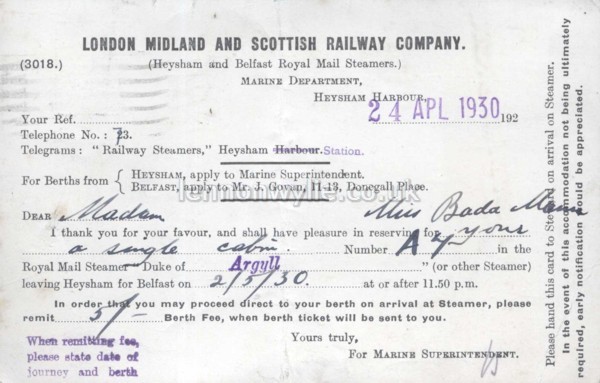 LONDON MIDLAND AND SCOTTISH RAILWAY COMPANY.
(3018.) (Heysham and Belfast Royal Mail Steamers.)
MARINE DEPARTMENT,
HEYSHAM HARBOUR,
24 APL 1930 192
Your Ref.
Telephone No.: 73.
Telegrams: "Railway Steamers," Heysham Harbour. Station.
For Berths from { HEYSHAM, apply to Marine Superintendent.
BELFAST, apply to Mr. J. Govan, 11-13, Donegall Place.
lennonwylie.co.uk
DEAR Madam Miss Bada Mann
I thank you for your favour, and shall have pleasure in reserving for your
a single cabin. Number A 4 in the
Royal Mail Steamer "Duke of Argyll" (or other Steamer)
leaving Heysham for Belfast on 2/5/30. at or after 11.50 p.m.
In order that you may proceed direct to your berth on arrival at Steamer, please
remit 5/- Berth Fee, when berth ticket will be sent to you.
Yours truly,
For MARINE SUPERINTENDENT.
When remitting fee,
please state date of
journey and berth
Please hand this card to Steward on arrival on Steamer.
In the event of this accommodation not being ultimately
required, early notification would be appreciated.